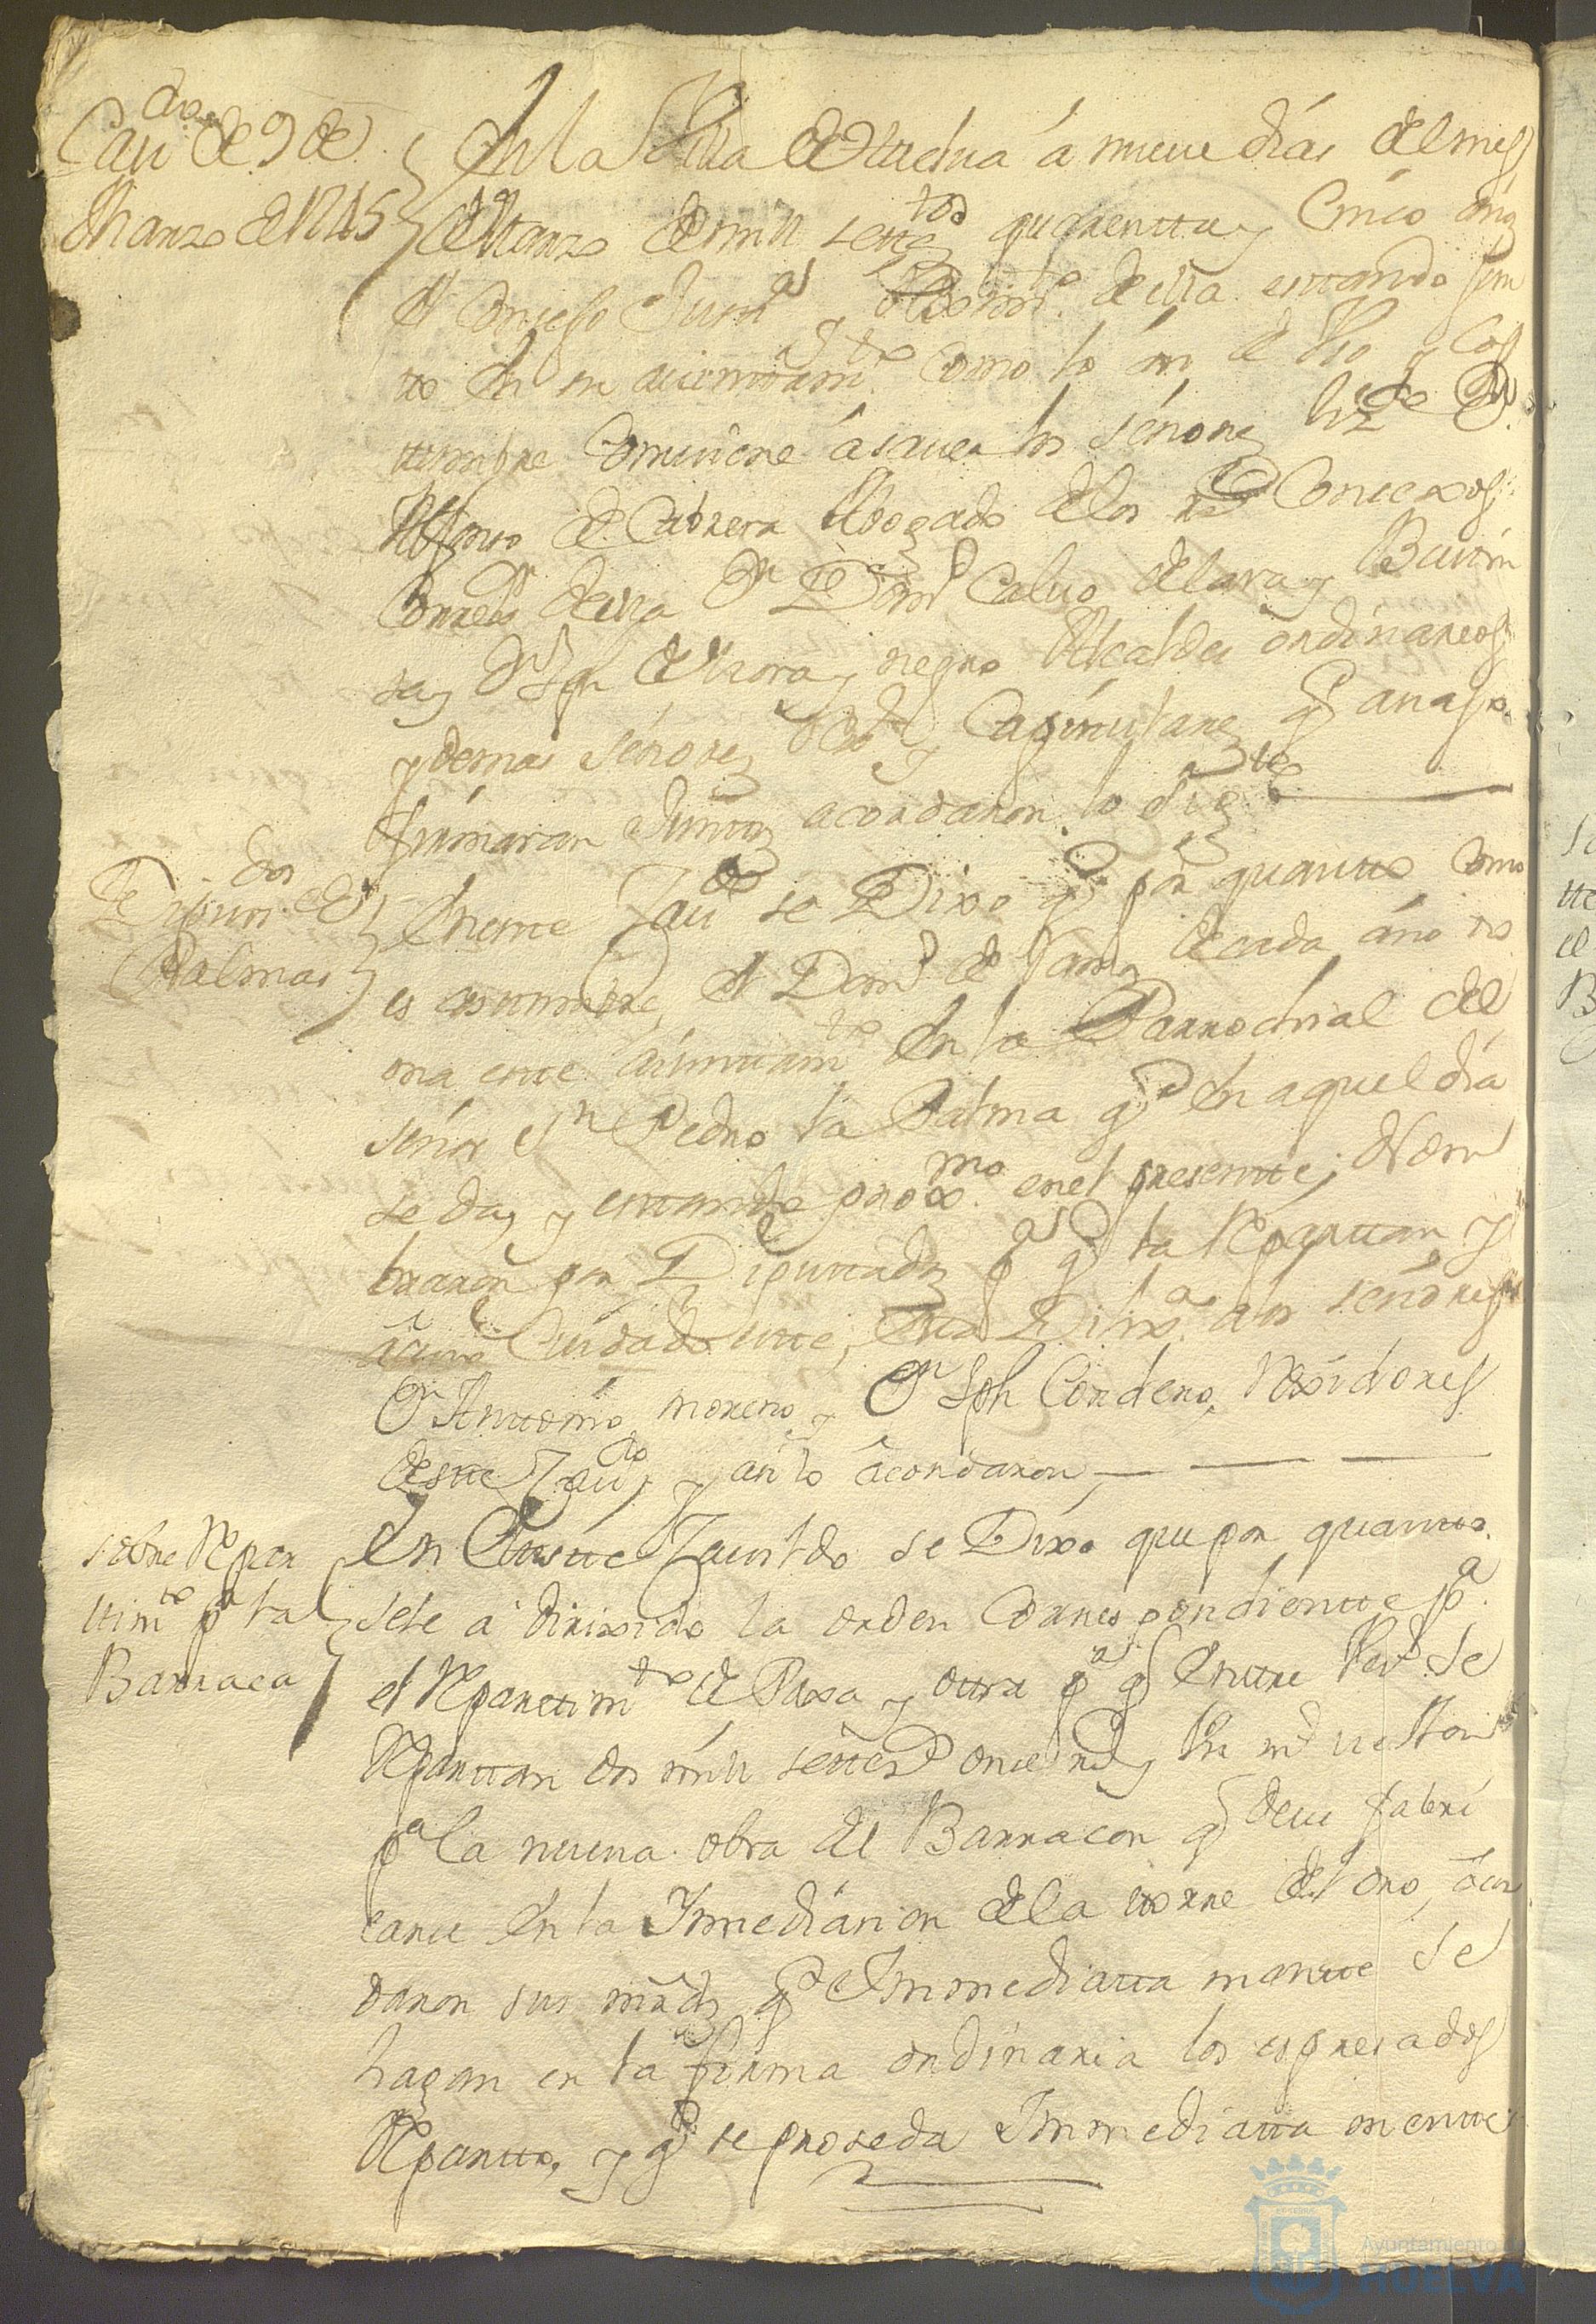 Cav.do de 9 de
Marzo de 1745
En la Villa de Huelva á nueve días del mes
de Marzo de mill settez.tos quarentta y Cinco
el Consejo Justt.a y Reximt.o de ella estando jun
tto en su aiuntamt.o como lo an de Uso y Cos
ttumbre Combiene á saver los señores liz.do D.n
Alfonso de Cabrera Abogado de los R.s Consexos
Corred.r de esta D.n Dom.o Calvo de lara y
D.n Jph de Mora y negro Alcaldes ordinareos
y demas señores Capitulares q.e avajo
firmaran Junttos acordaron lo sig.te
Diputt.dos de
Palmas
En este Cav.do se Dixo q.e por quantto como
es costtumbre el Dom.o de Ramos de cada áño
este aiunttamt.o en la Parrochial del
señor S.n Pedro la Palma q.e en aquel día
se da, y estando prox.mo en el presentte, Nom
braron por Diputtados p.a q.e la Repartan y
Cuidado este, esta Dix.a a los señores
D.n Anttonio moreno y D.n Jph Cordero, Rexidores
de este Cav.do y asi lo acordaron
sobre Repar
ttim.to p.a la
Barraca
En Este Cavildo se Dixo que por quantto
se le a dirixido la orden Correspondientte p.a
el Reparttim.to de Paxa y ottra p.a q.e Enttre Vez.s se
Reparttan dos mill settez.s once r.s y
p.a la nueva obra de el Barracon q.e deve fabri
carse en la Ymediazion de la ttorre de el oro, acor
daron sus mrds q.e Ynmediatta mentte se
hagan en la forma ordinaria los espresados
Repartto, y q.e se proseda Ynmediatta mentte
Ayuntamiento de
HUELVA